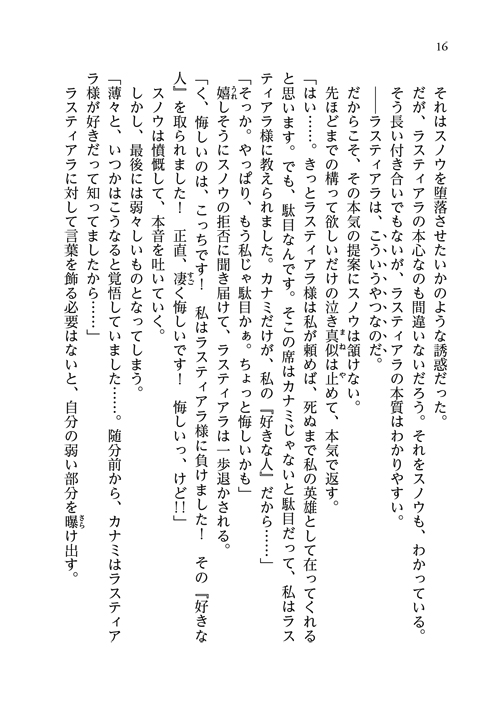 16
それはスノウを堕落させたいかのような誘惑だった。
だが、ラスティアラの本心なのも間違いないだろう。それをスノウも、わかっている。
そう長い付き合いでもないが、ラスティアラの本質はわかりやすい。
――ラスティアラは、こういうやつなのだ。
だからこそ、その本気の提案にスノウは頷けない。
先ほどまでの構って欲しいだけの泣き真似は止めて、本気で返す。
「はい……。きっとラスティアラ様は私が頼めば、死ぬまで私の英雄として在ってくれる
と思います。でも、駄目なんです。そこの席はカナミじゃないと駄目だって、私はラス
ティアラ様に教えられました。カナミだけが、私の『好きな人』だから……」
「そっか。やっぱり、もう私じゃ駄目かぁ。ちょっと悔しいかも」
嬉しそうにスノウの拒否に聞き届けて、ラスティアラは一歩退かされる。
「く、悔しいのは、こっちです！　私はラスティアラ様に負けました！　その『好きな
人』を取られました！　正直、凄く悔しいです！　悔しいっ、けど!!」
スノウは憤慨して、本音を吐いていく。
しかし、最後には弱々しいものとなってしまう。
「薄々と、いつかはこうなると覚悟していました……。随分前から、カナミはラスティア
ラ様が好きだって知ってましたから……」
ラスティアラに対して言葉を飾る必要はないと、自分の弱い部分を曝け出す。